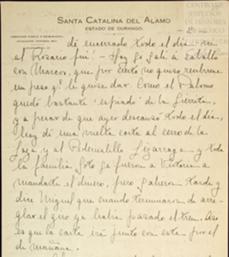 SANTA CATALINA DEL ALAMO
ESTADO DE DURANGO.
de encerrado todo el dia
el Rosario fui. Hoy ya salí a caballo
con Marcos, que por cierto no quiso recibirme
un peso q! le quise dar. Como el Palomo
quedó bastante "espiado" de la
y a pesar de que ayer descansó todo el dia,
hoy di una vuelta corta al cerro de la
y al Potrerillo Lizarraga y toda
la familia Soto se fueron a Victoria a
mandarte el dinero, pero salieron tarde y
dice Miguel que cuando terminaron de arre-
glar el giro ya habia pasado el tren. Asi
es que la carta irá junto con esta por el
de mañana.